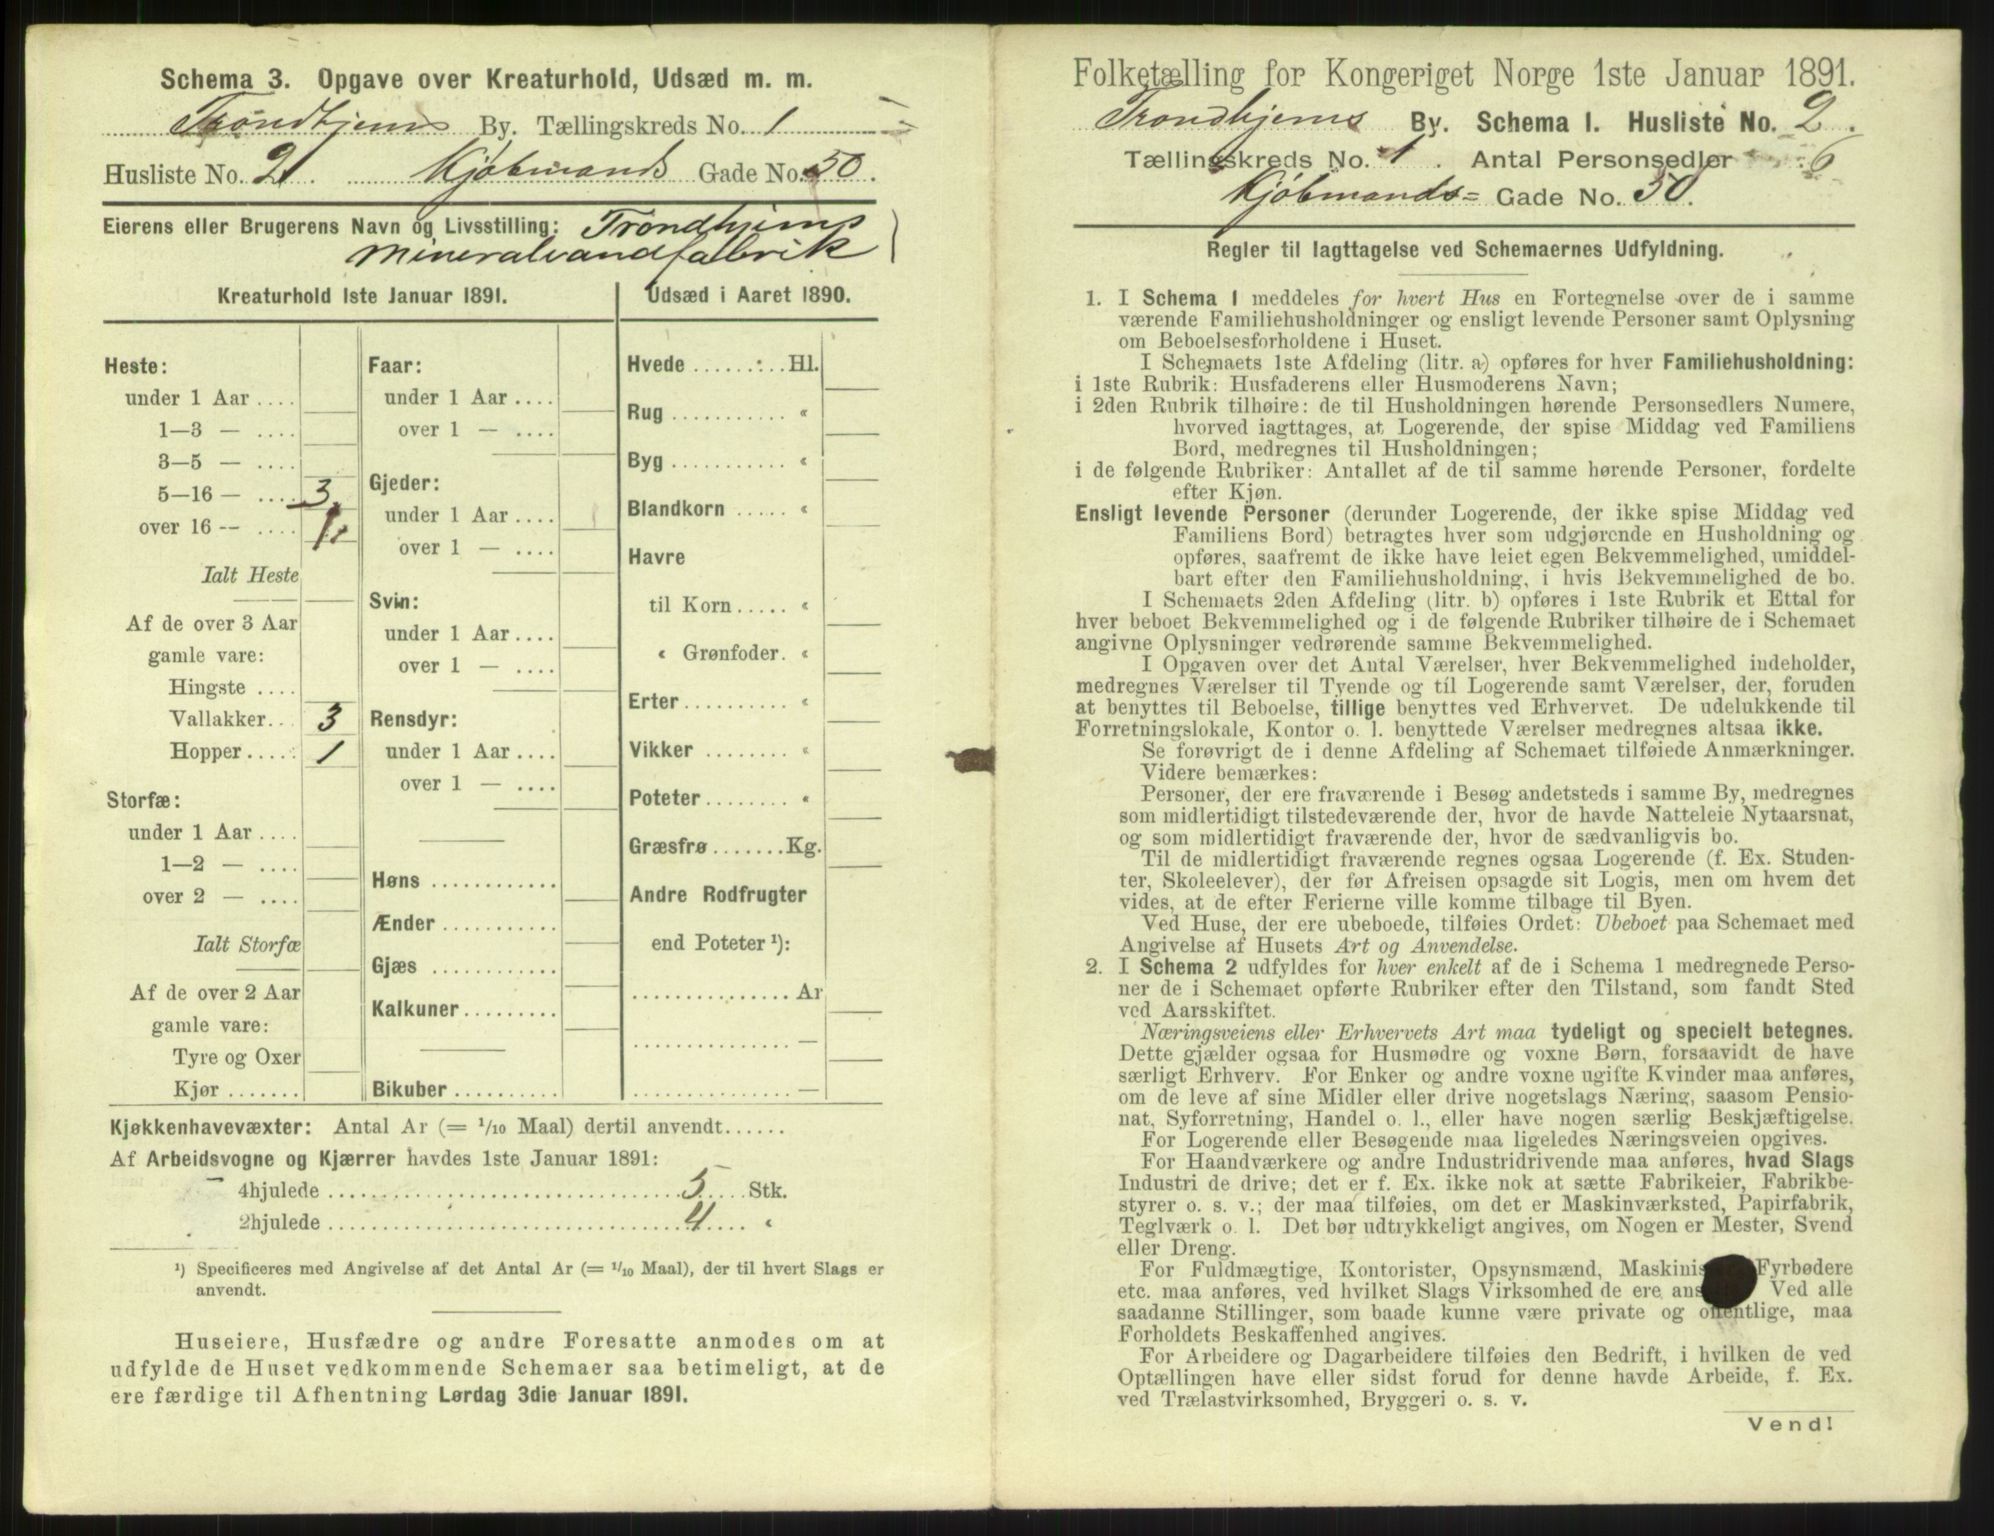 Schema 3. Opgave over Kreaturhold, Udsæd m. m.
Trondhjems By. Tællingskreds No. 1
Husliste No. 2. Kjøbmands Gade No. 50.
Eierens eller Brugerens Navn og Livsstilling: Trondhjems
Mineralvandfabrik
Kreaturhold 1ste Januar 1891.
Heste:
under 1 Aar ....
1—3 — ....
3—5 — ....
5—16 — .... 3.
over 16 — .... 1.
Ialt Heste
Af de over 3 Aar
gamle vare:
Hingste ....
Vallakker.. 3
Hopper ..... 1
Storfæ:
under 1 Aar ....
1—2 — ....
over 2 — ....
Ialt Storfæ
Af de over 2 Aar
gamle vare:
Tyre og Oxer
Kjør .......
Faar:
under 1 Aar ....
over 1 — ....
Gjeder:
under 1 Aar ....
over 1 — ....
Svin:
under 1 Aar ....
over 1 — ....
Rensdyr:
under 1 Aar ....
over 1 — ....
Høns ............
Ænder ...........
Gjæs ............
Kalkuner.........
Bikuber ..........
Udsæd i Aaret 1890.
Hvede ....... Hl.
Rug ........... «
Byg ........... «
Blandkorn ..... «
Havre
til Korn ..... «
« Grønfoder. «
Erter .......... «
Vikker ........ «
Poteter ........ «
Græsfrø ....... Kg.
Andre Rodfrugter
end Poteter ¹):
............... Ar
............... —
............... —
Kjøkkenhavevæxter: Antal Ar (= 1/10 Maal) dertil anvendt......
Af Arbeidsvogne og Kjærrer havdes 1ste Januar 1891:
4hjulede .............................. 5 ..... Stk.
2hjulede .............................. 4 ..... «
¹) Specificeres med Angivelse af det Antal Ar (= 1/10 Maal), der til hvert Slags er
anvendt.
Huseiere, Husfædre og andre Foresatte anmodes om at
udfylde de Huset vedkommende Schemaer saa betimeligt, at de
ere færdige til Afhentning Lørdag 3die Januar 1891.
Folketælling for Kongeriget Norge 1ste Januar 1891.
Trondhjems By. Schema 1. Husliste No. 2.
Tællingskreds No. 1. Antal Personsedler 6
Kjøbmands= Gade No. 50.
Regler til Iagttagelse ved Schemaernes Udfyldning.
1. I Schema 1 meddeles for hvert Hus en Fortegnelse over de i samme
værende Familiehusholdninger og ensligt levende Personer samt Oplysning
om Beboelsesforholdene i Huset.
I Schemaets 1ste Afdeling (litr. a) opføres for hver Familiehusholdning:
i 1ste Rubrik: Husfaderens eller Husmoderens Navn;
i 2den Rubrik tilhøire: de til Husholdningen hørende Personsedlers Numere,
hvorved iagttages, at Logerende, der spise Middag ved Familiens
Bord, medregnes til Husholdningen;
i de følgende Rubriker: Antallet af de til samme hørende Personer, fordelte
efter Kjøn.
Ensligt levende Personer (derunder Logerende, der ikke spise Middag ved
Familiens Bord) betragtes hver som udgjørende en Husholdning og
opføres, saafremt de ikke have leiet egen Bekvemmelighed, umiddel-
bart efter den Familiehusholdning, i hvis Bekvemmelighed de bo.
I Schemaets 2den Afdeling (litr. b) opføres i 1ste Rubrik et Ettal for
hver beboet Bekvemmelighed og i de følgende Rubriker tilhøire de i Schemaet
angivne Oplysninger vedrørende samme Bekvemmelighed.
I Opgaven over det Antal Værelser, hver Bekvemmelighed indeholder,
medregnes Værelser til Tyende og til Logerende samt Værelser, der, foruden
at benyttes til Beboelse, tillige benyttes ved Erhvervet. De udelukkende til
Forretningslokale, Kontor o. l. benyttede Værelser medregnes altsaa ikke.
Se forøvrigt de i denne Afdeling af Schemaet tilføiede Anmærkninger.
Videre bemærkes:
Personer, der ere fraværende i Besøg andetsteds i samme By, medregnes
som midlertidigt tilstedeværende der, hvor de havde Natteleie Nytaarsnat,
og som midlertidigt fraværende der, hvor de sædvanligvis bo.
Til de midlertidigt fraværende regnes ogsaa Logerende (f. Ex. Studen-
ter, Skoleelever), der før Afreisen opsagde sit Logis, men om hvem det
vides, at de efter Ferierne ville komme tilbage til Byen.
Ved Huse, der ere ubeboede, tilføies Ordet: Ubeboet paa Schemaet med
Angivelse af Husets Art og Anvendelse.
2. I Schema 2 udfyldes for hver enkelt af de i Schema 1 medregnede Perso-
ner de i Schemaet opførte Rubriker efter den Tilstand, som fandt Sted
ved Aarsskiftet.
Næringsveiens eller Erhvervets Art maa tydeligt og specielt betegnes.
Dette gjælder ogsaa for Husmødre og voxne Børn, forsaavidt de have
særligt Erhverv. For Enker og andre voxne ugifte Kvinder maa anføres,
om de leve af sine Midler eller drive nogetslags Næring, saasom Pensio-
nat, Syforretning, Handel o. l., eller have nogen særlig Beskjæftigelse.
For Logerende eller Besøgende maa ligeledes Næringsveien opgives.
For Haandværkere og andre Industridrivende maa anføres, hvad Slags
Industri de drive; det er f. Ex. ikke nok at sætte Fabrikeier, Fabrikbe-
styrer o. s. v.; der maa tilføies, om det er Maskinværksted, Papirfabrik,
Teglværk o. l. Det bør udtrykkeligt angives, om Nogen er Mester, Svend
eller Dreng.
For Fuldmægtige, Kontorister, Opsynsmænd, Maskinis Fyrbødere
etc. maa anføres, ved hvilket Slags Virksomhed de ere ans Ved alle
saadanne Stillinger, som baade kunne være private og offentlige, maa
Forholdets Beskaffenhed angives.
For Arbeidere og Dagarbeidere tilføies den Bedrift, i hvilken de ved
Optællingen have eller sidst forud for denne havde Arbeide, f. Ex.
ved Trælastvirksomhed, Bryggeri o. s. v.
Vend!